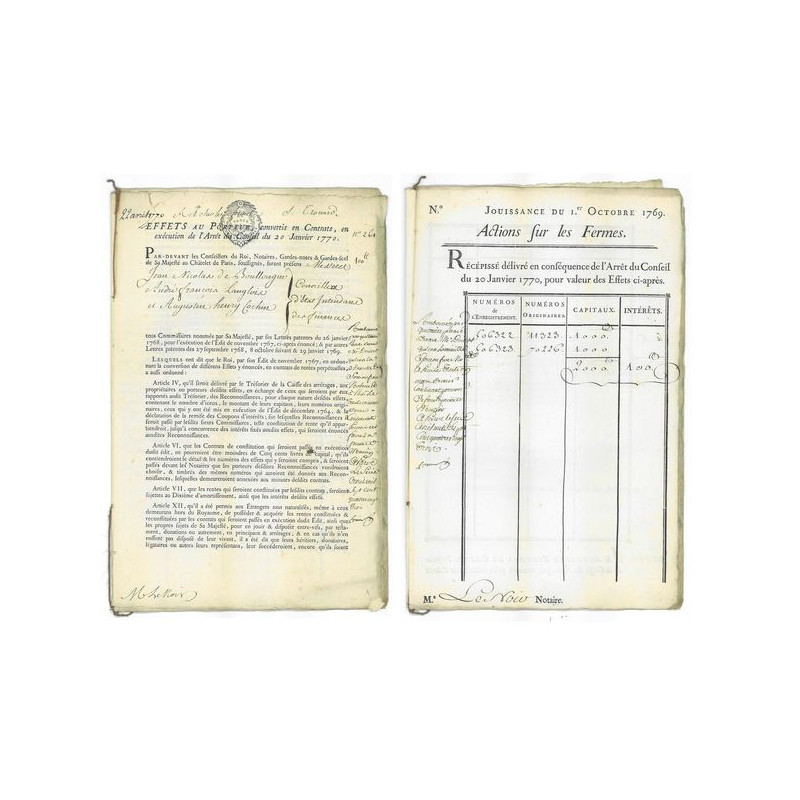 22 avril 1770
EFFETS AU PORTEUR, convertis en Contrats, en
exécution de l'Arrêt du Conseil du 20 Janvier 1770.
PAR-DEVANT les Conseillers du Roi, Notaires, Gardes-notes & Gardes-scel
de Sa Majesté au Châtelet de Paris, soussignés, furent présens Messires
Jean Nicolas de Boullongne
André François Langlois
et Augustin henry Cochin
Conseillers
d'Etat Intendans
des finances
tous Commissaires nommés par Sa Majesté, par ses Lettres patentes du 26 janvier
1768, pour l'exécution de l'Édit de novembre 1767, ci-après énoncé; & par autres
Lettres patentes des 27 septembre 1768, 8 octobre suivant & 29 janvier 1769.
LESQUELS ont dit que le Roi, par son Édit de novembre 1767, en ordon-
nant la conversion de différens Effets y énoncés, en contrats de rentes perpétuelles,
a aussi ordonné :
Article IV, qu'il seroit délivré par le Trésorier de la Caisse des arrérages, aux
propriétaires ou porteurs desdits effets qui seroient rapportés pour être convertis par
ledit Trésorier, des Reconnoissances, pour chaque nature desdits effets,
contenant le nombre d'iceux, le montant de leurs capitaux, leurs numéros origi-
naires, ceux qui y ont été mis en exécution de l'Édit de décembre 1764, & la
déclaration de la remise des Coupons d'intérêts, sur lesquelles Reconnoissances il
seroit passé par lesdits sieurs Commissaires, telle constitution de rente qu'il appar-
tiendroit, jusqu'à concurrence des intérêts fixés auxdits effets, qui seroient énoncés
auxdites Reconnoissances.
Article VI, que les Contrats de constitution qui seroient passés en exécution
dudit édit, ne pourroient être moindres de Cinq cents livres de capital, qu'ils
contiendroient le détail & les numéros des effets qui y seroient compris, & seroient
passés devant les Notaires que les porteurs desdites Reconnoissances voudroient
choisir, & timbrés des mêmes numéros qui auroient été donnés aux Recon-
noissances, lesquelles demeureroient annexées aux minutes desdits contrats.
Article VII, que les rentes qui seroient constituées par lesdits contrats, seroient
sujettes au Dixième d'amortissement, ainsi que les intérêts desdits effets.
Article XII, qu'il a été permis aux Étrangers non naturalisés, même à ceux
demeurans hors du Royaume, de posséder & acquérir les rentes constituées &
reconstituées par les contrats qui seroient passés en exécution dudit Édit, ainsi que
les propres sujets de Sa Majesté, pour en jouir & disposer entre-vifs, par testa-
ment, donations ou autrement, en principaux & arrérages; & en cas qu'ils n'en
eussent pas disposé de leur vivant, il a été dit que leurs héritiers, donataires,
légataires ou autres leurs représentant, leur succéderoient, encore qu'ils soient
M. Le Noir
N.º JOUISSANCE DU 1.er OCTOBRE 1769.
Actions sur les Fermes.
RÉCÉPISSÉ délivré en conséquence de l'Arrêt du Conseil
du 20 Janvier 1770, pour valeur des Effets ci-après.
NUMÉROS de L'ENREGISTREMENT. NUMÉROS ORIGINAIRES. CAPITAUX. INTÉRÊTS.
606322 11323 1000
606323 70226 1000
2000 100
M.e Le Noir Notaire.